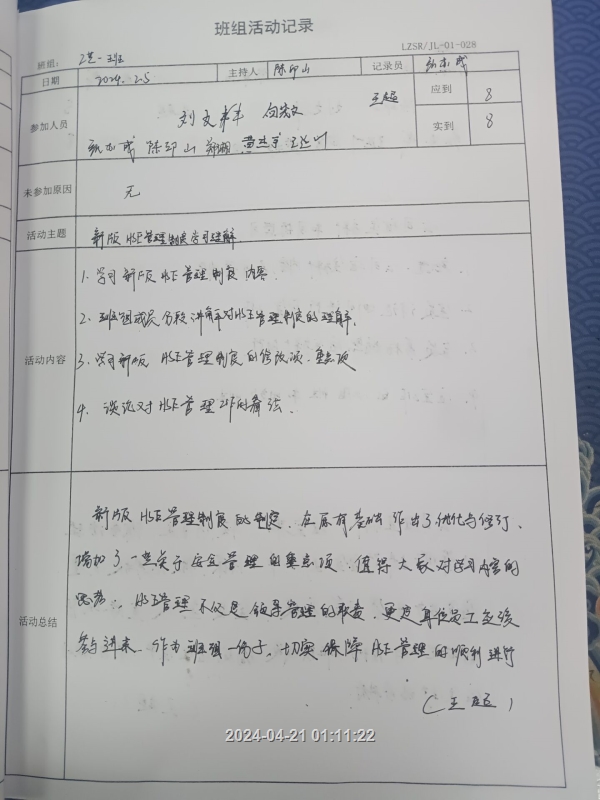 班组活动记录
LZSR/JL-01-028
班组: 2芝一班
日期 2024.2.5 主持人 陈印山 记录员
参加人员 王超 应到 8
刘文 实到 8
陈印山
未参加原因 无
活动主题 新版HSE管理制度学习理解.
活动内容
1. 学习新版HSE管理制度内容.
2. 班组成员分段讲解对HSE管理制度的理解.
3. 学习新版HSE管理制度的修改项.重点项
4. 谈论对HSE管理工作的看法.
活动总结
新版HSE管理制度的制定.在原有基础作出了优化与修订、
增加了一些关于安全管理的重点项.值得大家对学习内容的
思考.HSE管理不仅是领导管理的职责.更是每位员工应该
参与进来.作为班组一份子.切实保障HSE管理的顺利进行
(王超)
2024-04-21 01:11:22